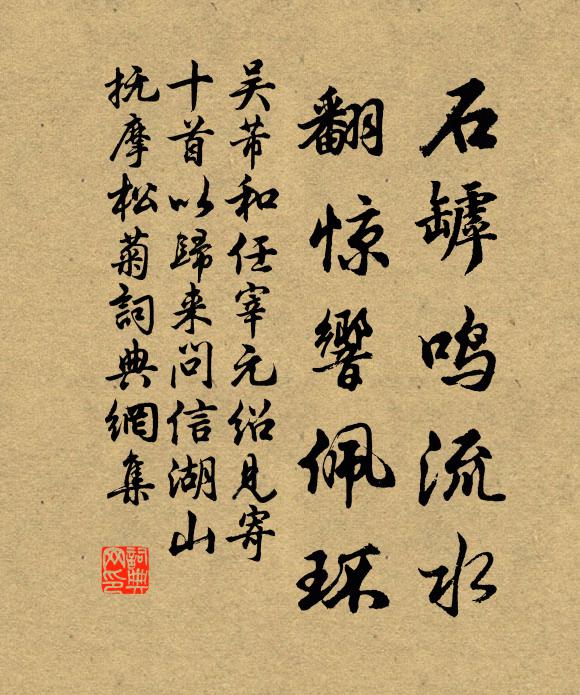 石罅鸣流水
翻惊響佩环
吴芾和任宰元绍見寄
十首以歸来问信湖山
抚摩松菊詞典網集
詞典
网印